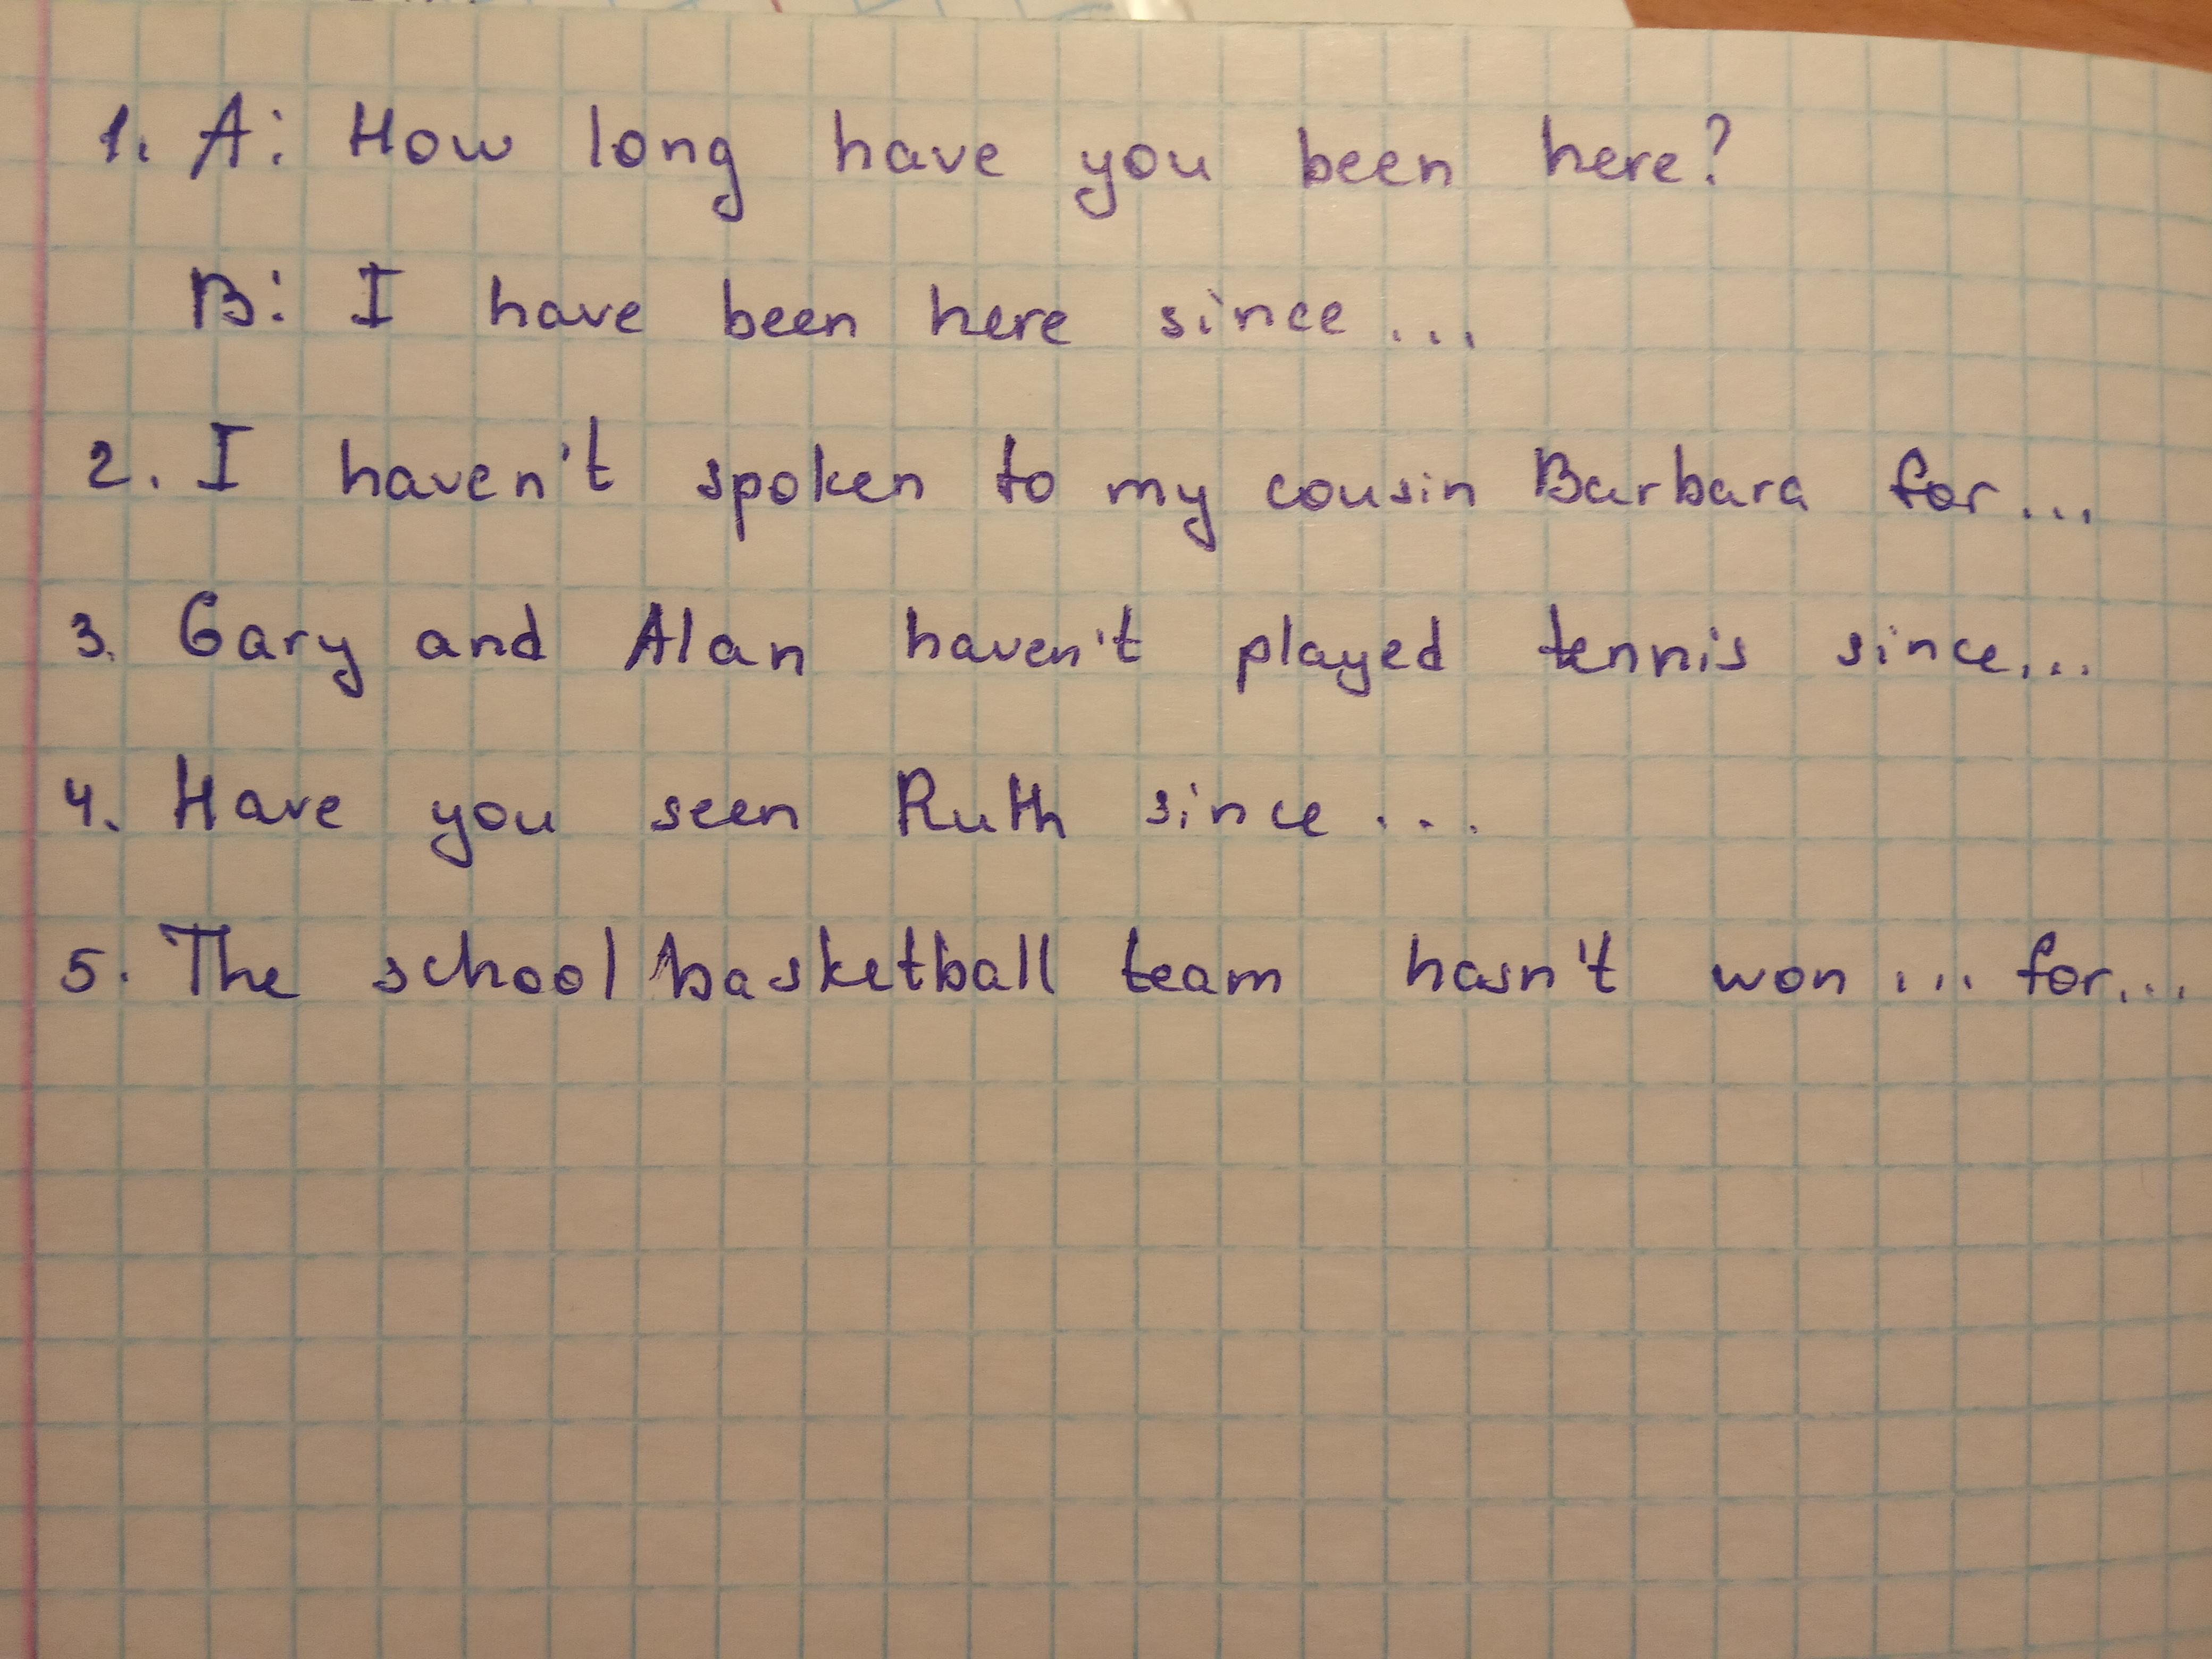 1. A: How long have you been here?
B: I have been here since...
2. I haven't spoken to my cousin Barbara for...
3. Gary and Alan haven't played tennis since...
4. Have you seen Ruth since...
5. The school basketball team hasn't won... for...